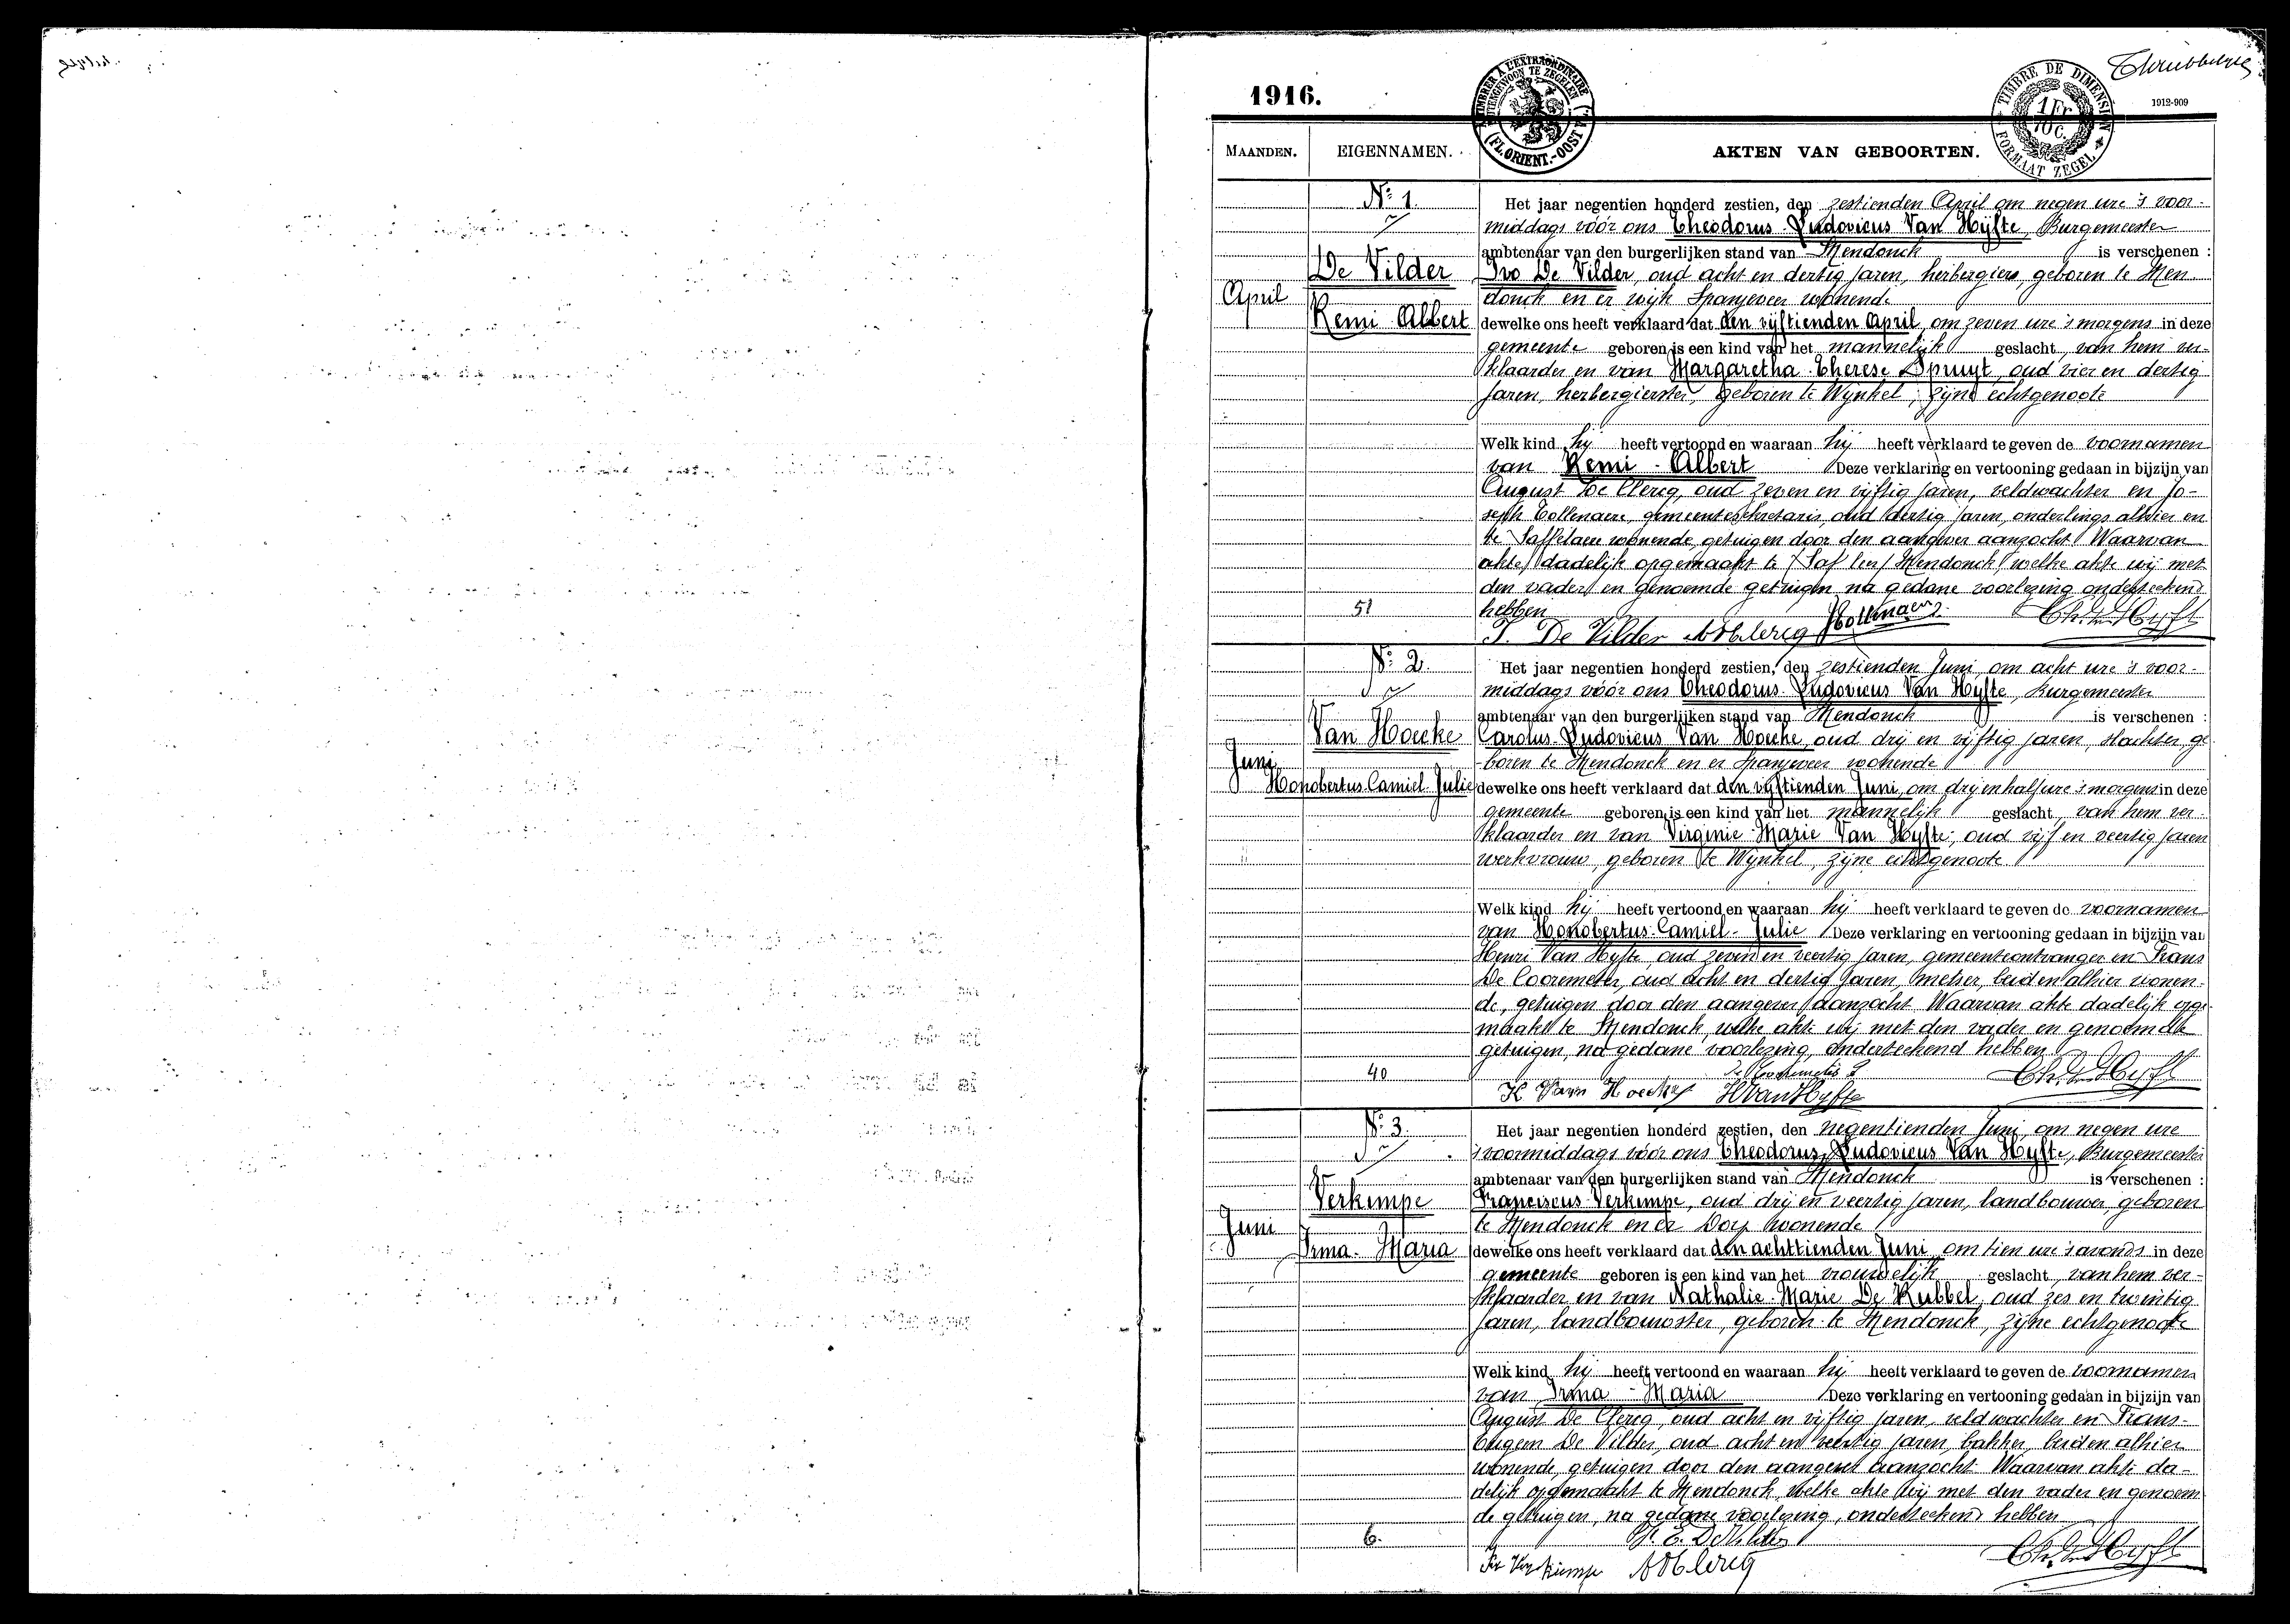 1916.
1912-909
TIMBRER A L'EXTRAORDINAIRE
BUITENGEWOON TE ZEGELEN
(FL. ORIENT.-OOST VL.)
TIMBRE DE DIMENSION
1 Fr
10 C.
FORMAAT ZEGEL
MAANDEN. EIGENNAMEN. AKTEN VAN GEBOORTEN.
N: 1.
De Vilder
April
Remi Albert
51
Het jaar negentien honderd zestien, den zestienden April om negen ure 's voor-
middags vóór ons Theodorus-Ludovicus Van Hyfte, Burgemeester
ambtenaar van den burgerlijken stand van Mendonck is verschenen :
Ivo De Vilder, oud acht en dertig jaren, herbergier, geboren te Men
donck en er wijk Spanjeveer wonende
dewelke ons heeft verklaard dat den vijftienden April, om zeven ure 's morgens in deze
gemeente geboren is een kind van het mannelijk geslacht, van hem ver-
klaarder en van Margaretha-Therese Spruyt, oud vier en dertig
jaren, herbergierster, geboren te Wynkel, zijne echtgenoote
Welk kind hij heeft vertoond en waaraan hij heeft verklaard te geven de voornamen
van Remi - Albert Deze verklaring en vertooning gedaan in bijzijn van
August De Clercq, oud zeven en vijftig jaren, veldwachter en Jo-
seph Collenaere, gemeentesekretaris, oud dertig jaren, onderlings alhier en
te Saffelaere wonende, getuigen door den aangever aanzocht. Waarvan
akte dadelijk opgemaakt te Mendonck, welke akte wij met
den vader en genoemde getuigen, na gedane voorlezing onderteekend
hebben
I. De Vilder A DClercq JCollenaere Th. V. Hyft
N: 2.
Van Hoecke
Juni
Honobertus-Camiel-Julie
40
Het jaar negentien honderd zestien, den zestienden Juni, om acht ure 's voor-
middags vóór ons Theodorus-Ludovicus Van Hyfte, Burgemeester
ambtenaar van den burgerlijken stand van Mendonck is verschenen :
Carolus-Ludovicus Van Hoecke, oud drij en vijftig jaren, slachter, ge
boren te Mendonck en er Spanjeveer wonende
dewelke ons heeft verklaard dat den vijftienden Juni, om drij en half ure 's morgens in deze
gemeente geboren is een kind van het mannelijk geslacht, van hem ver-
klaarder en van Virginie-Marie Van Hyfte, oud vijf en veertig jaren
werkvrouw, geboren te Wynkel, zijne echtgenoote
Welk kind hij heeft vertoond en waaraan hij heeft verklaard te geven de voornamen
van Honobertus-Camiel-Julie Deze verklaring en vertooning gedaan in bijzijn van
Henri Van Hyfte, oud zeven en veertig jaren, gemeenteontvanger en Frans
De Cooremeter, oud acht en dertig jaren, metser, beiden alhier wonen-
de, getuigen door den aangever aanzocht. Waarvan akte dadelijk opge
maakt te Mendonck, welke akte wij met den vader en genoemde
getuigen, na gedane voorlezing, onderteekend hebben
K Van Hoecke H Van Hyfte Th. V. Hyft
N: 3.
Verkimpe
Juni
Irma-Maria
6.
Het jaar negentien honderd zestien, den negentienden Juni, om negen ure
's voormiddags vóór ons Theodorus-Ludovicus Van Hyfte, Burgemeester
ambtenaar van den burgerlijken stand van Mendonck is verschenen :
Franciscus Verkimpe, oud drij en veertig jaren, landbouwer, geboren
te Mendonck en er Dorp wonende
dewelke ons heeft verklaard dat den achttienden Juni, om tien ure 's avonds in deze
gemeente geboren is een kind van het vrouwelijk geslacht, van hem ver-
klaarder en van Nathalie-Marie De Kubbel, oud zes en twintig
jaren, landbouwster, geboren te Mendonck, zijne echtgenoote
Welk kind hij heeft vertoond en waaraan hij heeft verklaard te geven de voornamen
van Irma - Maria Deze verklaring en vertooning gedaan in bijzijn van
August De Clercq, oud acht en vijftig jaren, veldwachter en Frans-
Eugeen De Vilder, oud acht en veertig jaren, bakker, beiden alhier
wonende, getuigen door den aangever aanzocht. Waarvan akte da-
delijk opgemaakt te Mendonck, welke akte wij met den vader en genoem
de getuigen, na gedane voorlezing, onderteekend hebben
F. E. De Vilder
Fr Verkimpe A DClercq Th. V. Hyft